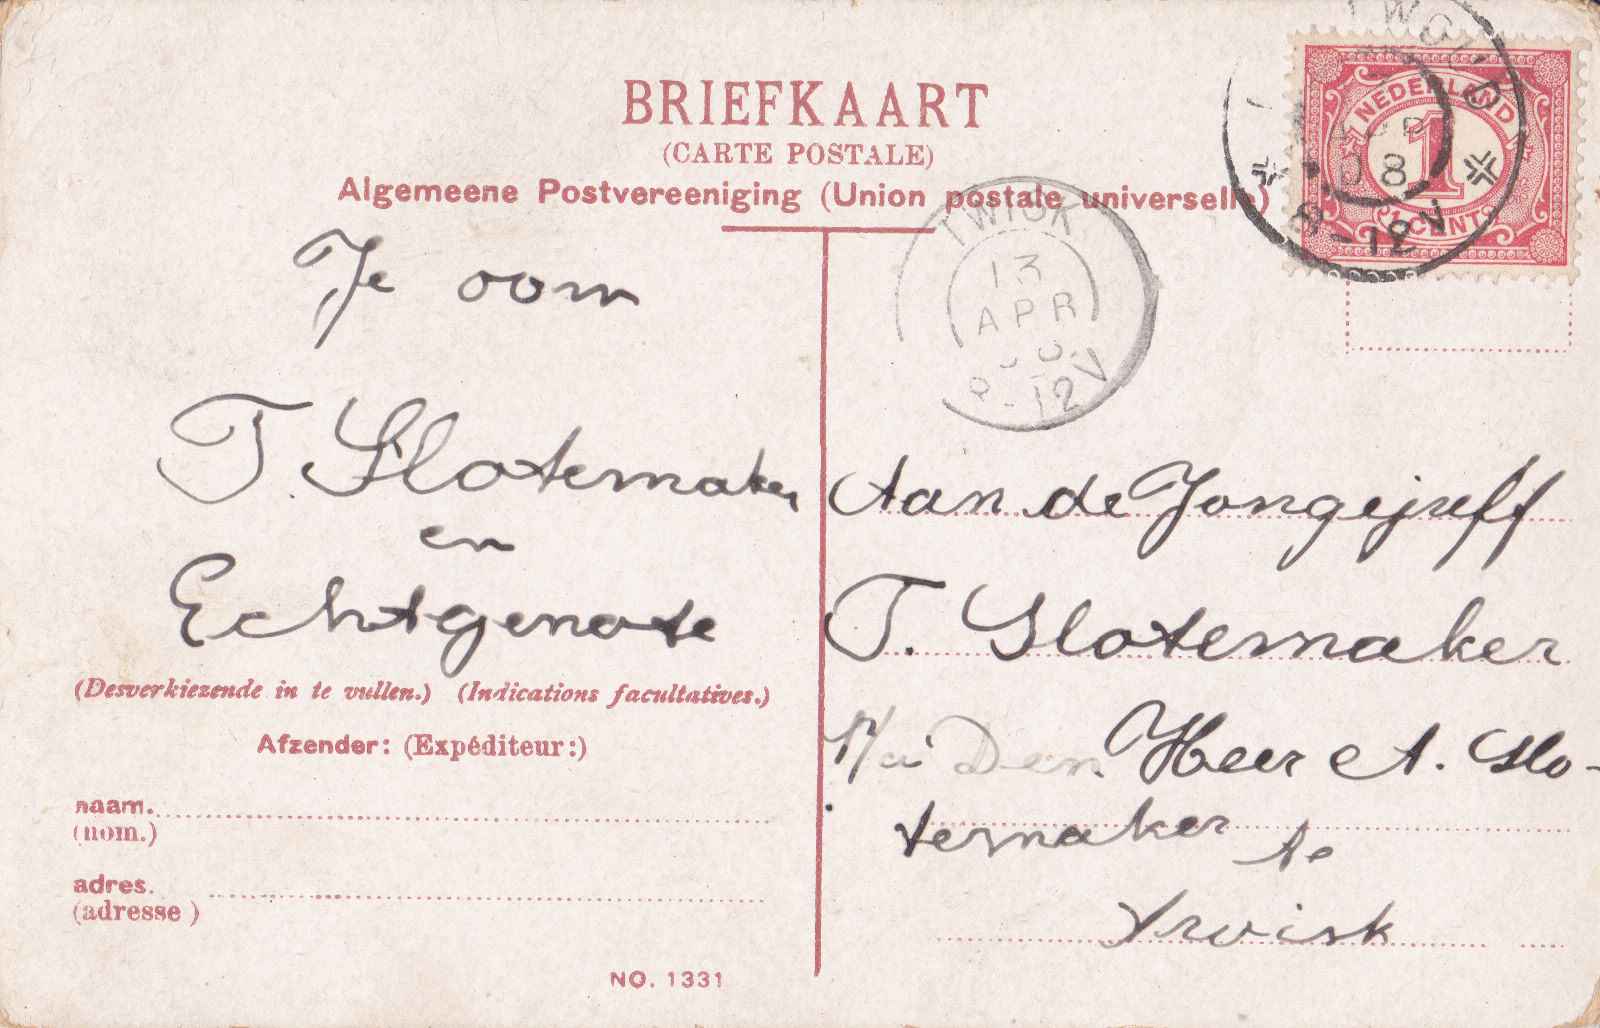 BRIEFKAART
(CARTE POSTALE)
Algemeene Postvereeniging (Union postale universelle)
NEDERLAND
1
1 CENT
08
8-12V
TWISK
13
APR
8-12V
Je oom
T. Slotemaker
en
Echtgenote
(Desverkiezende in te vullen.) (Indications facultatives.)
Afzender: (Expéditeur:)
naam.
(nom.)
adres.
(adresse)
NO. 1331
Aan de Jongejuff
T. Slotemaker
Den Heer A. Slo-
temaker
te
Twisk